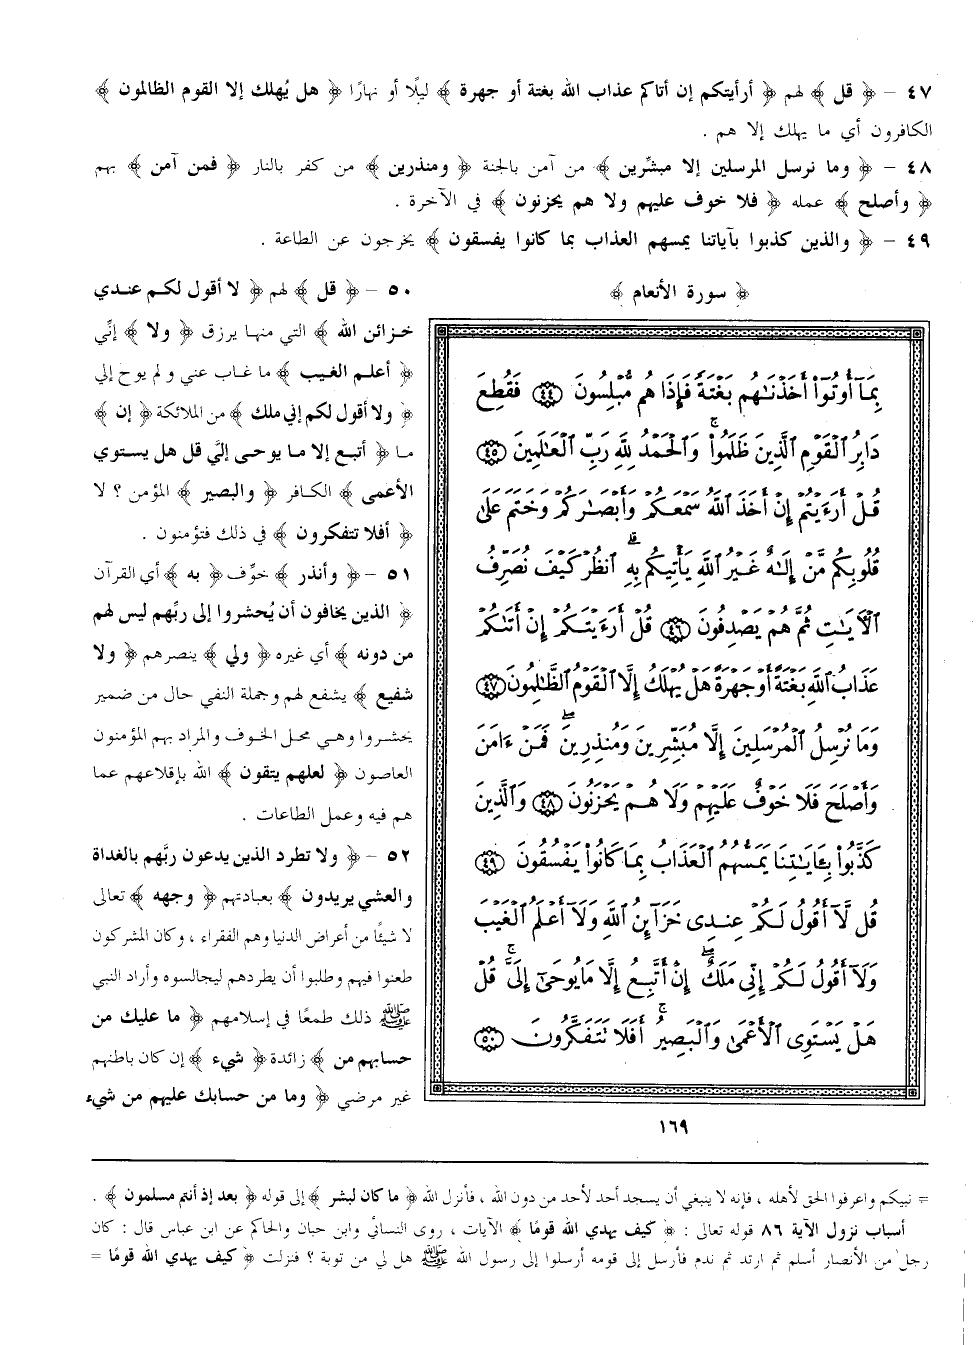 ٤٧ - ﴿ قل ﴾ لهم ﴿ أرأيتكم إن أتاكم عذاب الله بغتة أو جهرة ﴾ ليلًا أو نهارًا ﴿ هل يُهلك إلا القوم الظالمون ﴾
الكافرون أي ما يهلك إلا هم .
٤٨ - ﴿ وما نرسل المرسلين إلا مبشِّرين ﴾ من آمن بالجنة ﴿ ومنذرين ﴾ من كفر بالنار ﴿ فمن آمن ﴾ بهم
﴿ وأصلح ﴾ عمله ﴿ فلا خوف عليهم ولا هم يحزنون ﴾ في الآخرة .
٤٩ - ﴿ والذين كذبوا بآياتنا يمسهم العذاب بما كانوا يفسقون ﴾ يخرجون عن الطاعة .
﴿ سورة الأنعام ﴾
بِمَآ أُوتُوٓا۟ أَخَذْنَٰهُم بَغْتَةً فَإِذَا هُم مُّبْلِسُونَ ٤٤ فَقُطِعَ
دَابِرُ ٱلْقَوْمِ ٱلَّذِينَ ظَلَمُوا۟ ۚ وَٱلْحَمْدُ لِلَّهِ رَبِّ ٱلْعَٰلَمِينَ ٤٥
قُلْ أَرَءَيْتُمْ إِنْ أَخَذَ ٱللَّهُ سَمْعَكُمْ وَأَبْصَٰرَكُمْ وَخَتَمَ عَلَىٰ
قُلُوبِكُم مَّنْ إِلَٰهٌ غَيْرُ ٱللَّهِ يَأْتِيكُم بِهِ ۗ ٱنظُرْ كَيْفَ نُصَرِّفُ
ٱلْءَايَٰتِ ثُمَّ هُمْ يَصْدِفُونَ ٤٦ قُلْ أَرَءَيْتَكُمْ إِنْ أَتَىٰكُمْ
عَذَابُ ٱللَّهِ بَغْتَةً أَوْ جَهْرَةً هَلْ يُهْلَكُ إِلَّا ٱلْقَوْمُ ٱلظَّٰلِمُونَ ٤٧
وَمَا نُرْسِلُ ٱلْمُرْسَلِينَ إِلَّا مُبَشِّرِينَ وَمُنذِرِينَ ۖ فَمَنْ ءَامَنَ
وَأَصْلَحَ فَلَا خَوْفٌ عَلَيْهِمْ وَلَا هُمْ يَحْزَنُونَ ٤٨ وَٱلَّذِينَ
كَذَّبُوا۟ بِـَٔايَٰتِنَا يَمَسُّهُمُ ٱلْعَذَابُ بِمَا كَانُوا۟ يَفْسُقُونَ ٤٩
قُل لَّآ أَقُولُ لَكُمْ عِندِى خَزَآئِنُ ٱللَّهِ وَلَآ أَعْلَمُ ٱلْغَيْبَ
وَلَآ أَقُولُ لَكُمْ إِنِّى مَلَكٌ ۖ إِنْ أَتَّبِعُ إِلَّا مَا يُوحَىٰٓ إِلَىَّ ۚ قُلْ
هَلْ يَسْتَوِى ٱلْأَعْمَىٰ وَٱلْبَصِيرُ ۚ أَفَلَا تَتَفَكَّرُونَ ٥٠
١٦٩
٥٠ - ﴿ قل ﴾ لهم ﴿ لا أقول لكم عندي
خزائن الله ﴾ التي منها يرزق ﴿ ولا ﴾ إنِّي
﴿ أعلم الغيب ﴾ ما غاب عني ولم يوح إلي
﴿ ولا أقول لكم إني ملك ﴾ من الملائكة ﴿ إن ﴾
ما ﴿ أتبع إلا ما يوحى إليَّ قل هل يستوي
الأعمى ﴾ الكافر ﴿ والبصير ﴾ المؤمن ؟ لا
﴿ أفلا تتفكرون ﴾ في ذلك فتؤمنون .
٥١ - ﴿ وأنذر ﴾ خوِّف ﴿ به ﴾ أي القرآن
﴿ الذين يخافون أن يُحشروا إلى ربِّهم ليس لهم
من دونه ﴾ أي غيره ﴿ ولي ﴾ ينصرهم ﴿ ولا
شفيع ﴾ يشفع لهم وجملة النفي حال من ضمير
يحشروا وهي محل الخوف والمراد بهم المؤمنون
العاصون ﴿ لعلهم يتقون ﴾ الله بإقلاعهم عما
هم فيه وعمل الطاعات .
٥٢ - ﴿ ولا تطرد الذين يدعون ربَّهم بالغداة
والعشي يريدون ﴾ بعبادتهم ﴿ وجهه ﴾ تعالى
لا شيئًا من أعراض الدنيا وهم الفقراء ، وكان المشركون
طعنوا فيهم وطلبوا أن يطردهم ليجالسوه وأراد النبي
ﷺ ذلك طمعًا في إسلامهم ﴿ ما عليك من
حسابهم من ﴾ زائدة ﴿ شيء ﴾ إن كان باطنهم
غير مرضي ﴿ وما من حسابك عليهم من شيء
= نبيكم واعرفوا الحق لأهله ، فإنه لا ينبغي أن يسجد أحد لأحد من دون الله ، فأنزل الله ﴿ ما كان لبشر ﴾ إلى قوله ﴿ بعد إذ أنتم مسلمون ﴾ .
أسباب نزول الآية ٨٦ قوله تعالى : ﴿ كيف يهدي الله قومًا ﴾ الآيات ، روى النسائي وابن حبان والحاكم عن ابن عباس قال : كان
رجل من الأنصار أسلم ثم ارتد ثم ندم فأرسل إلى قومه أرسلوا إلى رسول الله ﷺ هل لي من توبة ؟ فنزلت ﴿ كيف يهدي الله قومًا =